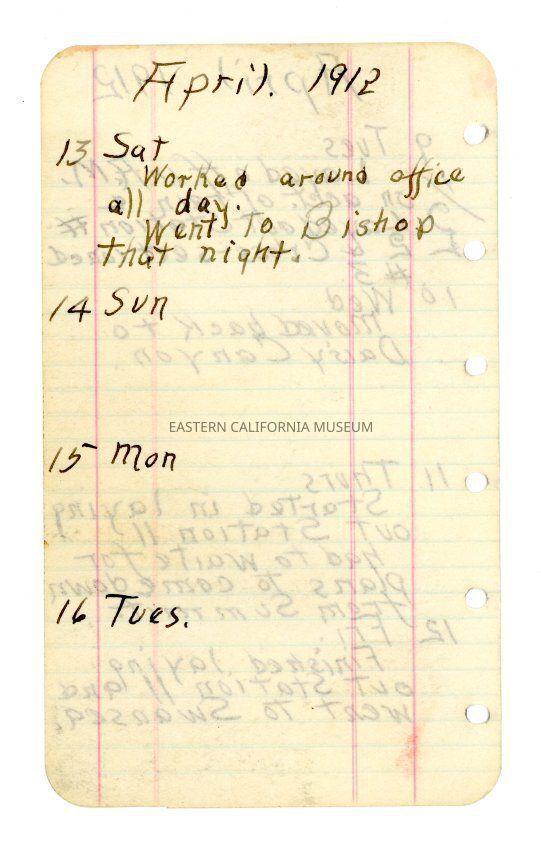 April. 1912
13 Sat
Worked around office
all day.
Went to Bishop
that night.
14 Sun
EASTERN CALIFORNIA MUSEUM
15 Mon
16 Tues.